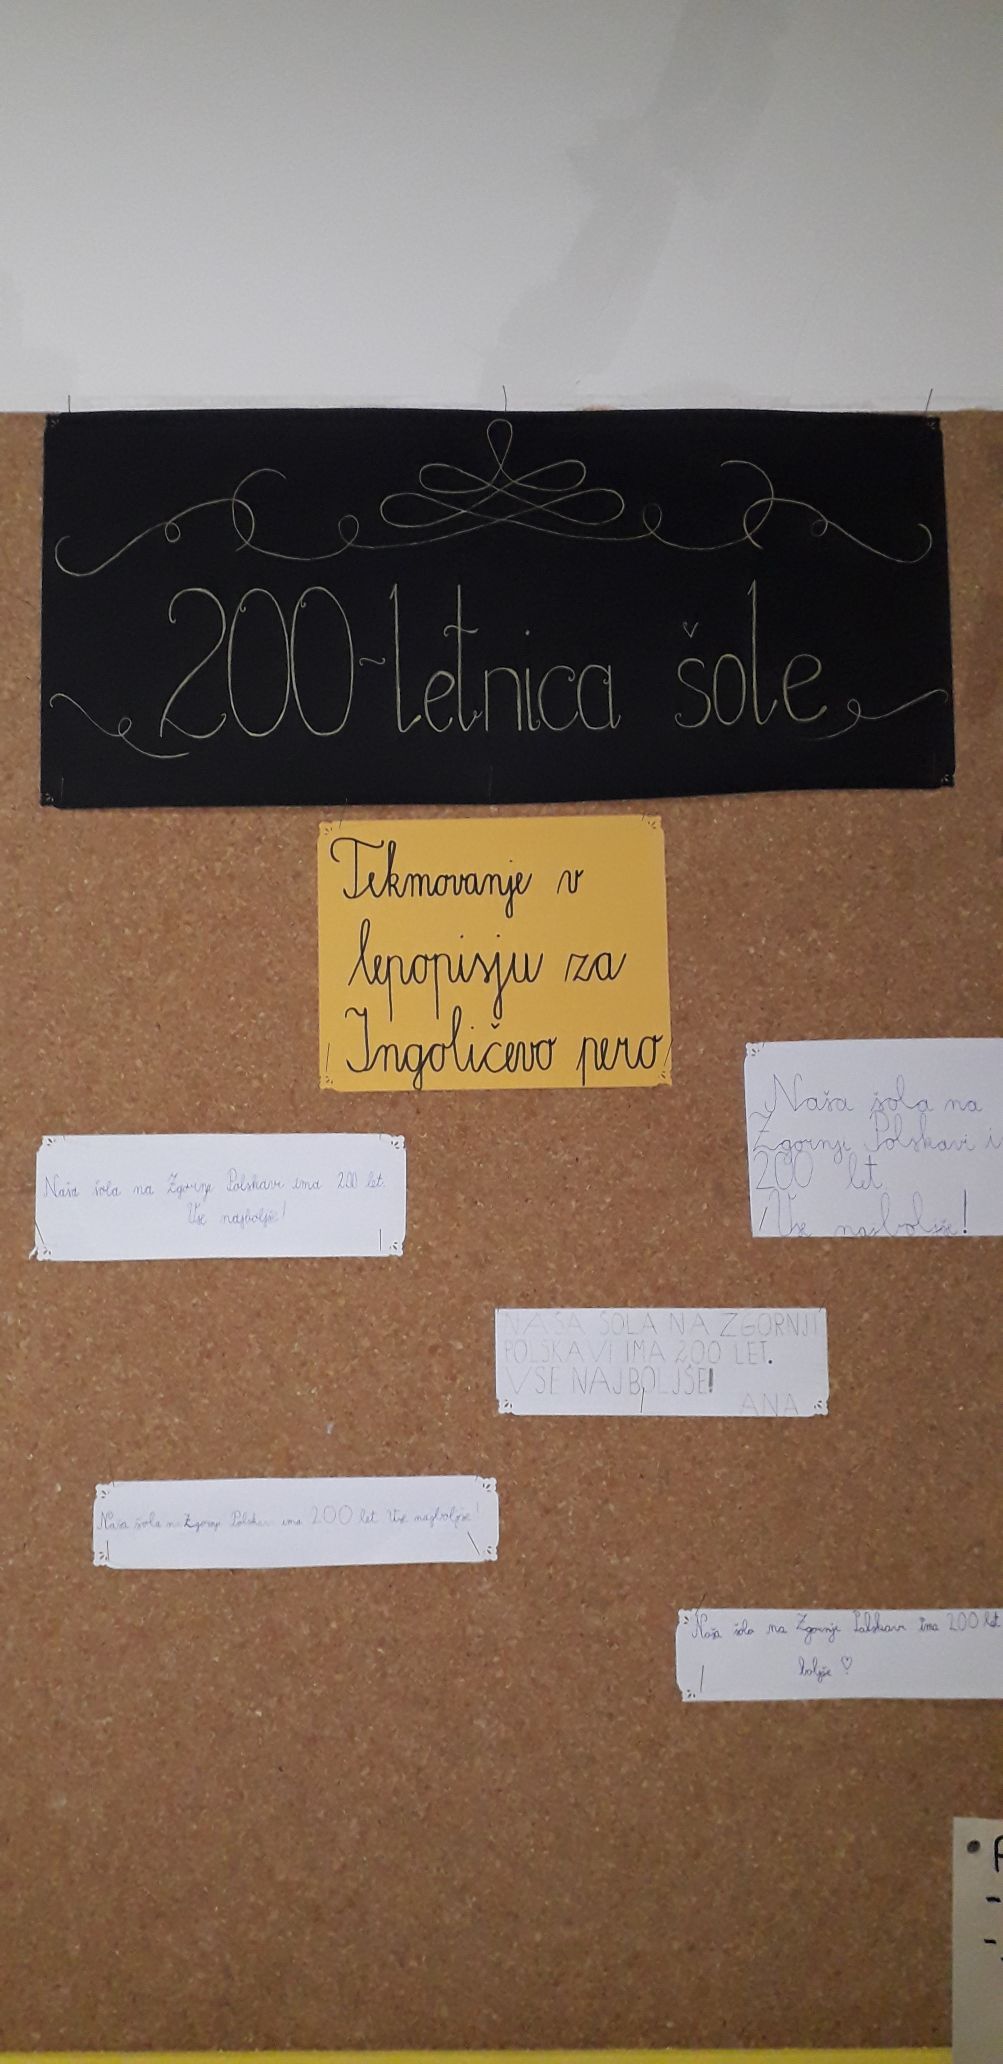 200-letnica šole
Tekmovanje v
lepopisju za
Ingoličevo pero
Naša šola na
Zgornji Polskavi i
200 let
Vse najboljše!
Naša šola na Zgornji Polskavi ima 200 let.
Vse najboljše!
NAŠA ŠOLA NA ZGORNJI
POLSKAVI IMA 200 LET.
VSE NAJBOLJŠE!
ANA
Naša šola na Zgornji Polskavi ima 200 let Vse najboljše!
Naša šola na Zgornji Polskavi ima 200 let
boljše